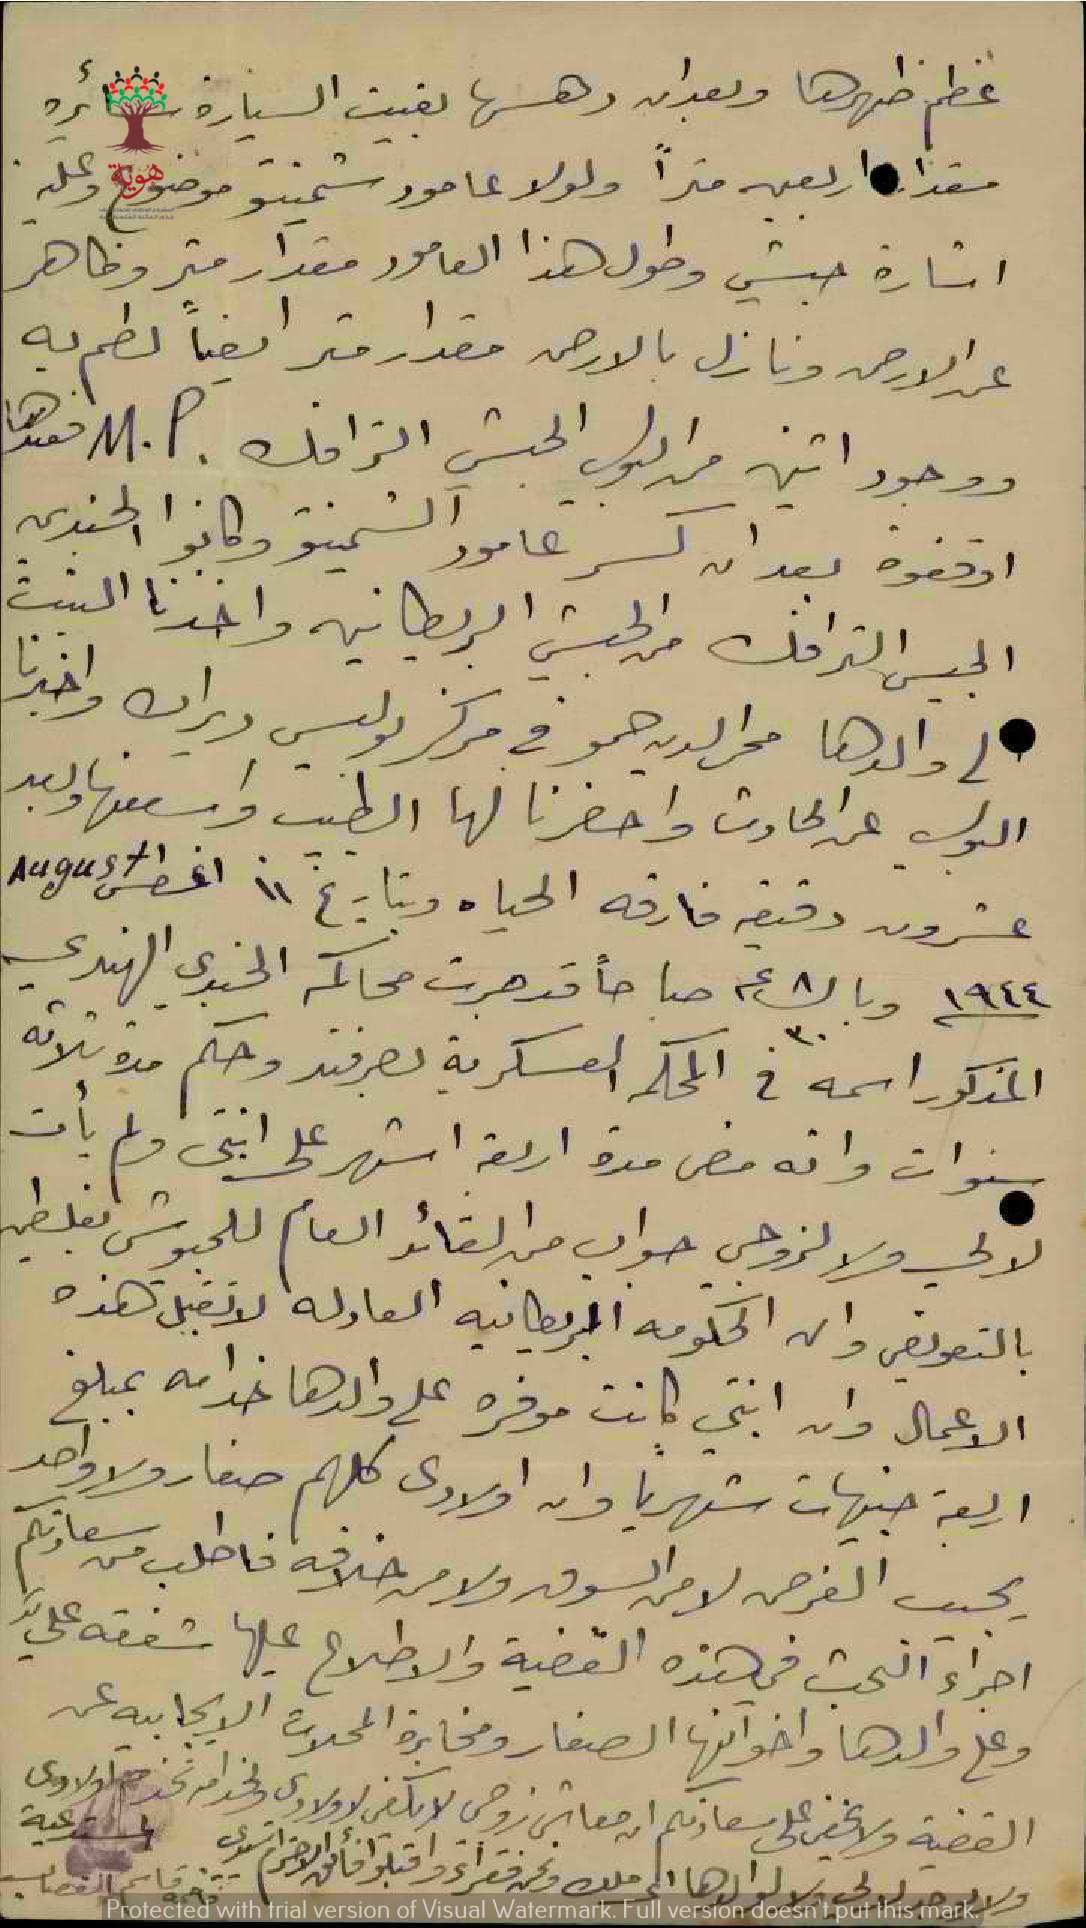 عظم ظهرها وبعد ان دهسها بقيت السيارة سائره
مقدار اربعين متراً ولولا عامود شمينتو موضوع وعليه
اشارة جيش وطول هذا العامود مقدار متر وظاهر
عن الارض ونازل بالارض مقدار متر ايضاً لطم به
ووجود اثنين من البوليس الجيش الترافك M.P. فعندها
اوقفوه بعد ان كسر عامود الشمينتو وكانوا الجنديين
الجيس الترافك من الجيش البريطانيه واخذنا البنت
لى والدها محي الدين حمو في مركز بوليس ديران واخبرنا
البوليس عن الحادث واحضرنا لها الطبيب واسعفها وبعد
عشرون دقيقه فارقه الحياه وبتاريخ ١١ اغسطس August
١٩٤٤ وبالساعه ٨ صباحاً قد جرت محاكمه الجندي الهندي
٣٠
المذكور اسمه في المحكمه العسكرية بصرفند وحكم مدة ثلاثه
سنوات وانه مضى مدة اربعة اشهر على ابنتي ولم يأت
لا لي ولا لزوجي جواب من القائد العام للجيوش بفلسطين
بالتعويض وان الحكومه البريطانيه العادله لا تقبل هذه
الاعمال وان ابنتي كانت موفره على والدها خدامه بمبلغ
اربعة جنيهات شهرياً وان اولادى كلهم صغار ولا واحد
يجيب الغرض لا من السوق ولا من خلافه فاطلب من سعادتكم
اجراء البحث في هذه القضية والاطلاع عليها شفقه علي
وعلى والدها واخوانها الصغار ومخابرة المحلات الايجابيه عن
القضية ولا يخفى على سعادتكم ان معاش زوجي لا يكفي لاولادي ولخدامه تخدم اولادى
ولا يوجد لا لي ولا لوالدها اي ملك ونحن فقراء واقبلوا فائق الاحترام سيدى
المستدعية
قاسم القصاب
هوية
Protected with trial version of Visual Watermark. Full version doesn't put this mark.